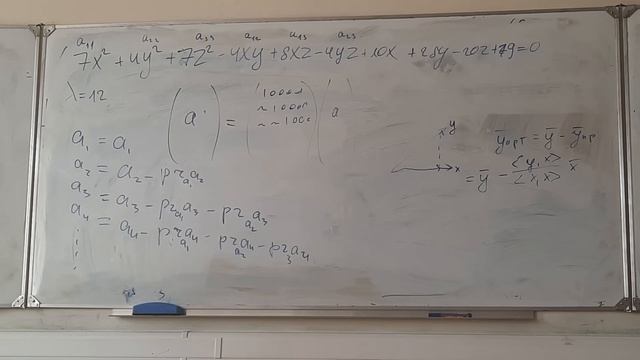 a₁₁ a₂₂ a₃₃ a₁₂ a₁₃ a₂₃
7x² + 4y² + 7z² - 4xy + 8xz - 4yz + 10x + 28y - 20z + 79 = 0
λ = 12
(a) = ( a
10000
~ 1000
~ ~ 100
a₁ = a₁
a₂ = a₂ - pr a₂
a₁
a₃ = a₃ - pr a₃ - pr a₃
a₁ a₂
a₄ = a₄ - pr a₄ - pr a₄ - pr a₄
a₁ a₂ 3
y
x
y орт = y - y пр
= y - <y, x> / <x, x> x